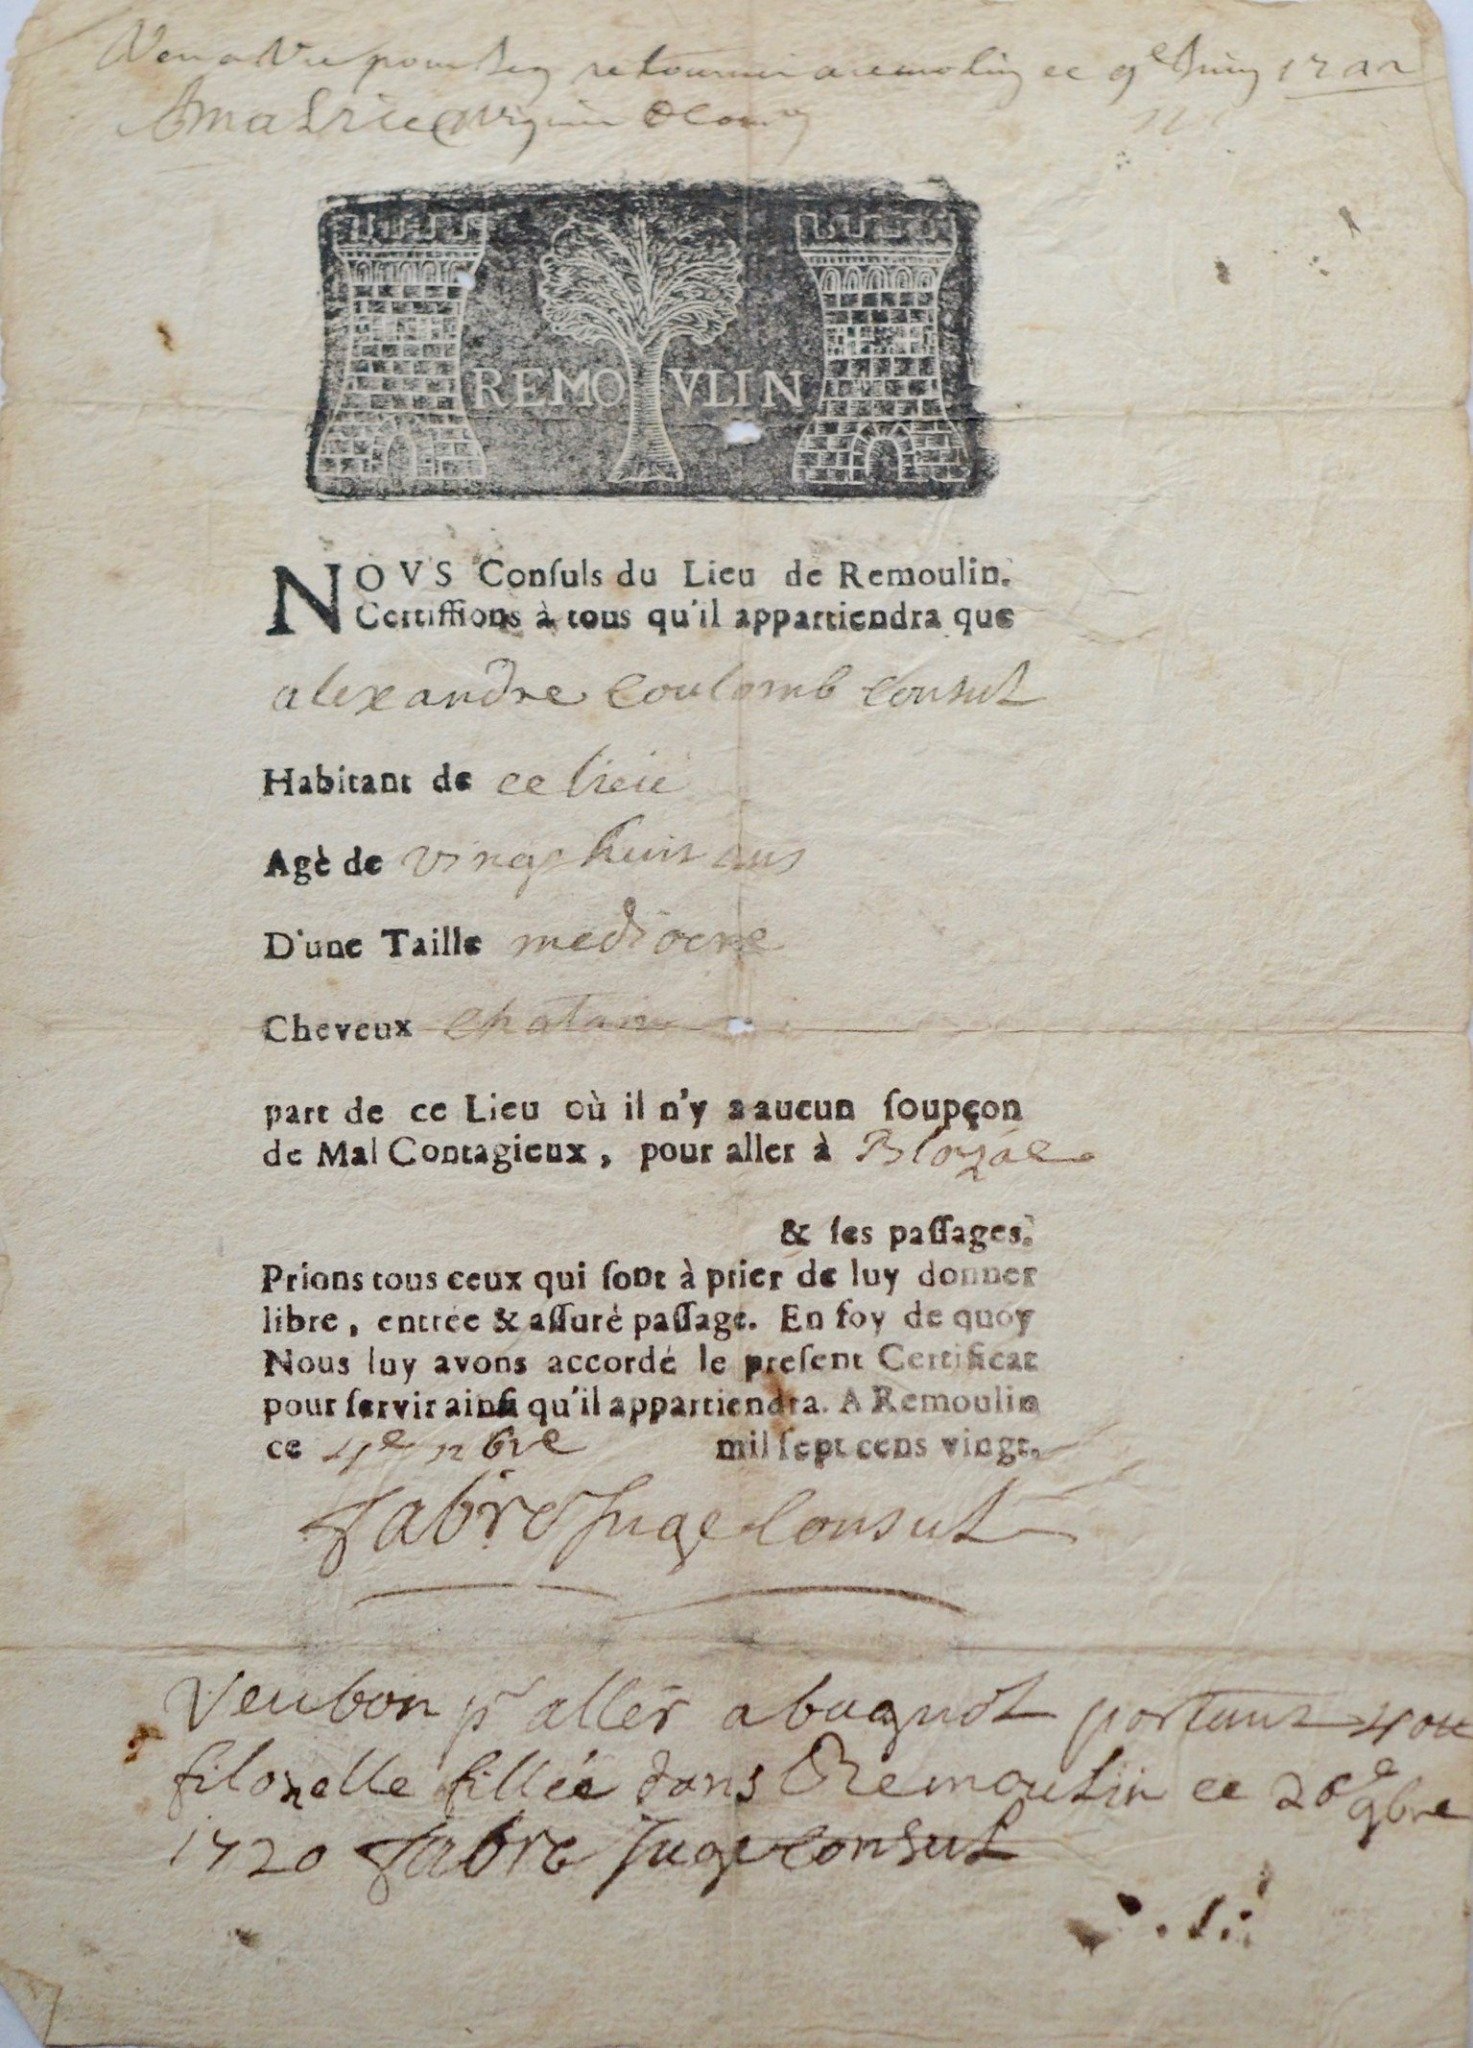 retourner a remolin ce 9e Juin
REMOVLIN
NOVS Conſuls du Lieu de Remoulin.
Certiffions à tous qu'il appartiendra que
alexandre Coulomb Consul
Habitant de ce lieu
Agè de vingt huit ans
D'une Taille mediocre
Cheveux chatain
part de ce Lieu où il n'y a aucun ſoupçon
de Mal Contagieux, pour aller à
& ſes paſſages.
Prions tous ceux qui ſont à prier de luy donner
libre, entrée & aſſuré paſſage. En foy de quoy
Nous luy avons accordé le preſent Certificat
pour ſervir ainſi qu'il appartiendra. A Remoulin
ce bre mil ſept cens vingt.
fabre Juge Consul
Veu bon pr aller a bagnol portant
filozelle fillée dans Remoulin ce 26e 9bre
1720 fabre Juge consul